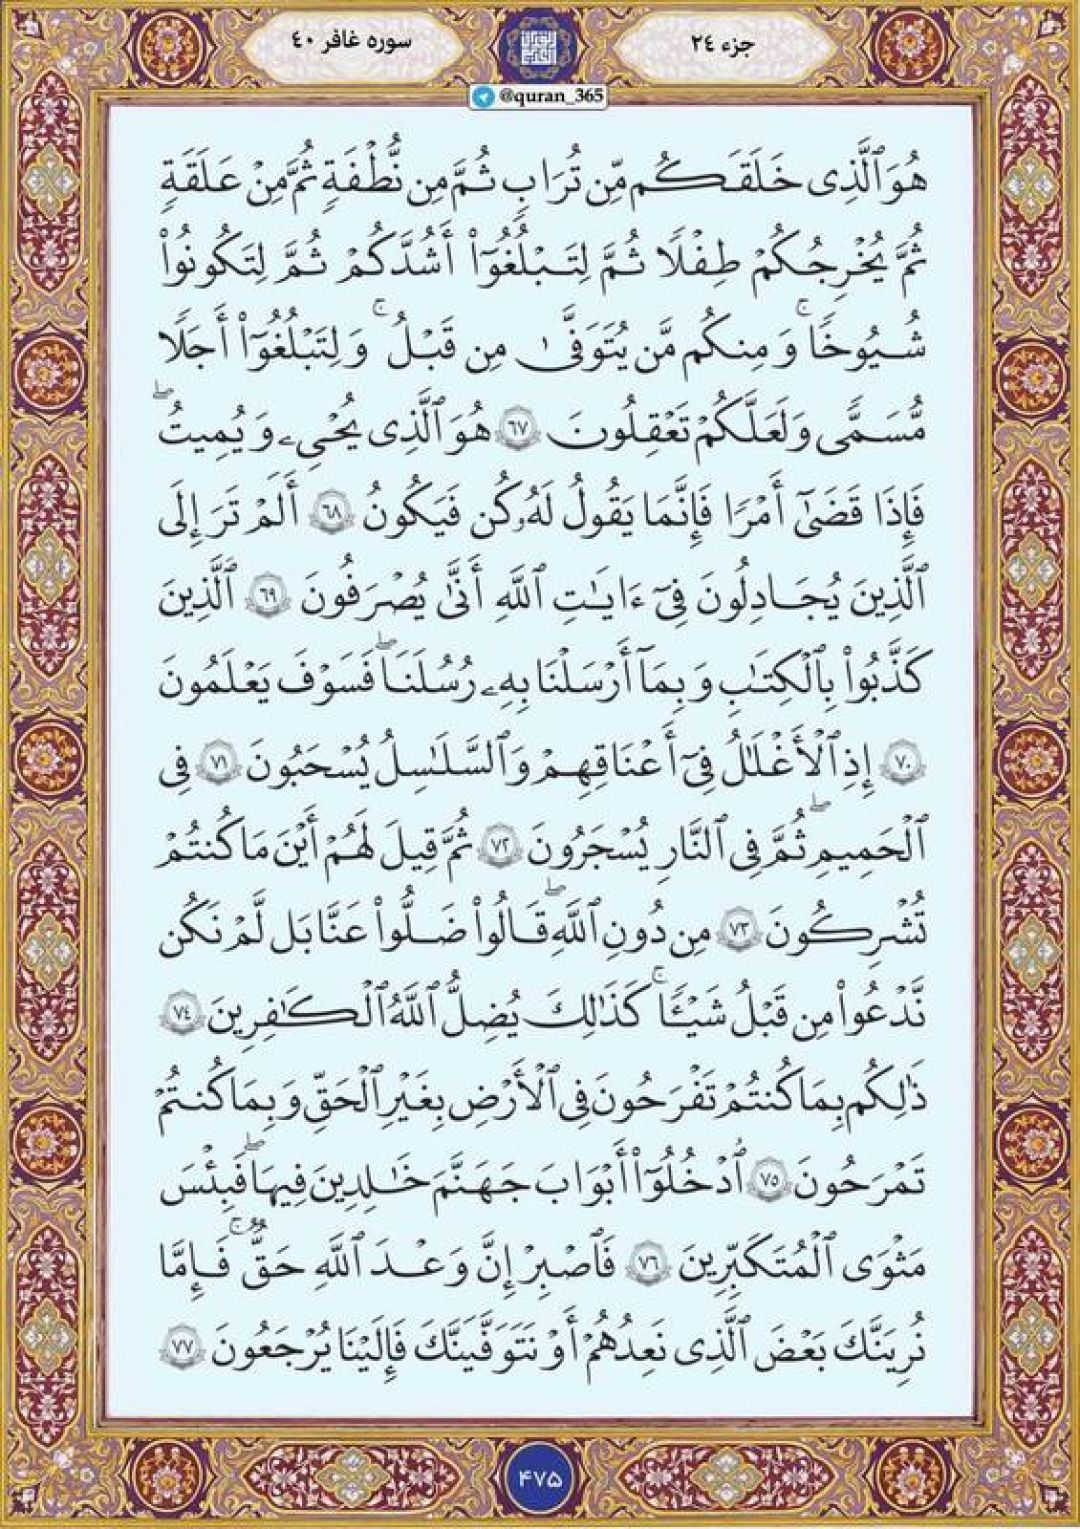 سوره غافر ٤٠
جزء ٢٤
@quran_365
هُوَ ٱلَّذِى خَلَقَكُم مِّن تُرَابٍ ثُمَّ مِن نُّطْفَةٍ ثُمَّ مِنْ عَلَقَةٍ
ثُمَّ يُخْرِجُكُمْ طِفْلًا ثُمَّ لِتَبْلُغُوٓا۟ أَشُدَّكُمْ ثُمَّ لِتَكُونُوا۟
شُيُوخًا ۚ وَمِنكُم مَّن يُتَوَفَّىٰ مِن قَبْلُ ۚ وَلِتَبْلُغُوٓا۟ أَجَلًا
مُّسَمًّى وَلَعَلَّكُمْ تَعْقِلُونَ ٦٧ هُوَ ٱلَّذِى يُحْىِۦ وَيُمِيتُ ۖ
فَإِذَا قَضَىٰٓ أَمْرًا فَإِنَّمَا يَقُولُ لَهُۥ كُن فَيَكُونُ ٦٨ أَلَمْ تَرَ إِلَى
ٱلَّذِينَ يُجَـٰدِلُونَ فِىٓ ءَايَـٰتِ ٱللَّهِ أَنَّىٰ يُصْرَفُونَ ٦٩ ٱلَّذِينَ
كَذَّبُوا۟ بِٱلْكِتَـٰبِ وَبِمَآ أَرْسَلْنَا بِهِۦ رُسُلَنَا ۖ فَسَوْفَ يَعْلَمُونَ
٧٠ إِذِ ٱلْأَغْلَـٰلُ فِىٓ أَعْنَـٰقِهِمْ وَٱلسَّلَـٰسِلُ يُسْحَبُونَ ٧١ فِى
ٱلْحَمِيمِ ۖ ثُمَّ فِى ٱلنَّارِ يُسْجَرُونَ ٧٢ ثُمَّ قِيلَ لَهُمْ أَيْنَ مَا كُنتُمْ
تُشْرِكُونَ ٧٣ مِن دُونِ ٱللَّهِ ۖ قَالُوا۟ ضَلُّوا۟ عَنَّا بَل لَّمْ نَكُن
نَّدْعُوا۟ مِن قَبْلُ شَيْـًٔا ۚ كَذَٰلِكَ يُضِلُّ ٱللَّهُ ٱلْكَـٰفِرِينَ ٧٤
ذَٰلِكُم بِمَا كُنتُمْ تَفْرَحُونَ فِى ٱلْأَرْضِ بِغَيْرِ ٱلْحَقِّ وَبِمَا كُنتُمْ
تَمْرَحُونَ ٧٥ ٱدْخُلُوٓا۟ أَبْوَٰبَ جَهَنَّمَ خَـٰلِدِينَ فِيهَا ۖ فَبِئْسَ
مَثْوَى ٱلْمُتَكَبِّرِينَ ٧٦ فَٱصْبِرْ إِنَّ وَعْدَ ٱللَّهِ حَقٌّ ۚ فَإِمَّا
نُرِيَنَّكَ بَعْضَ ٱلَّذِى نَعِدُهُمْ أَوْ نَتَوَفَّيَنَّكَ فَإِلَيْنَا يُرْجَعُونَ ٧٧
۴۷۵